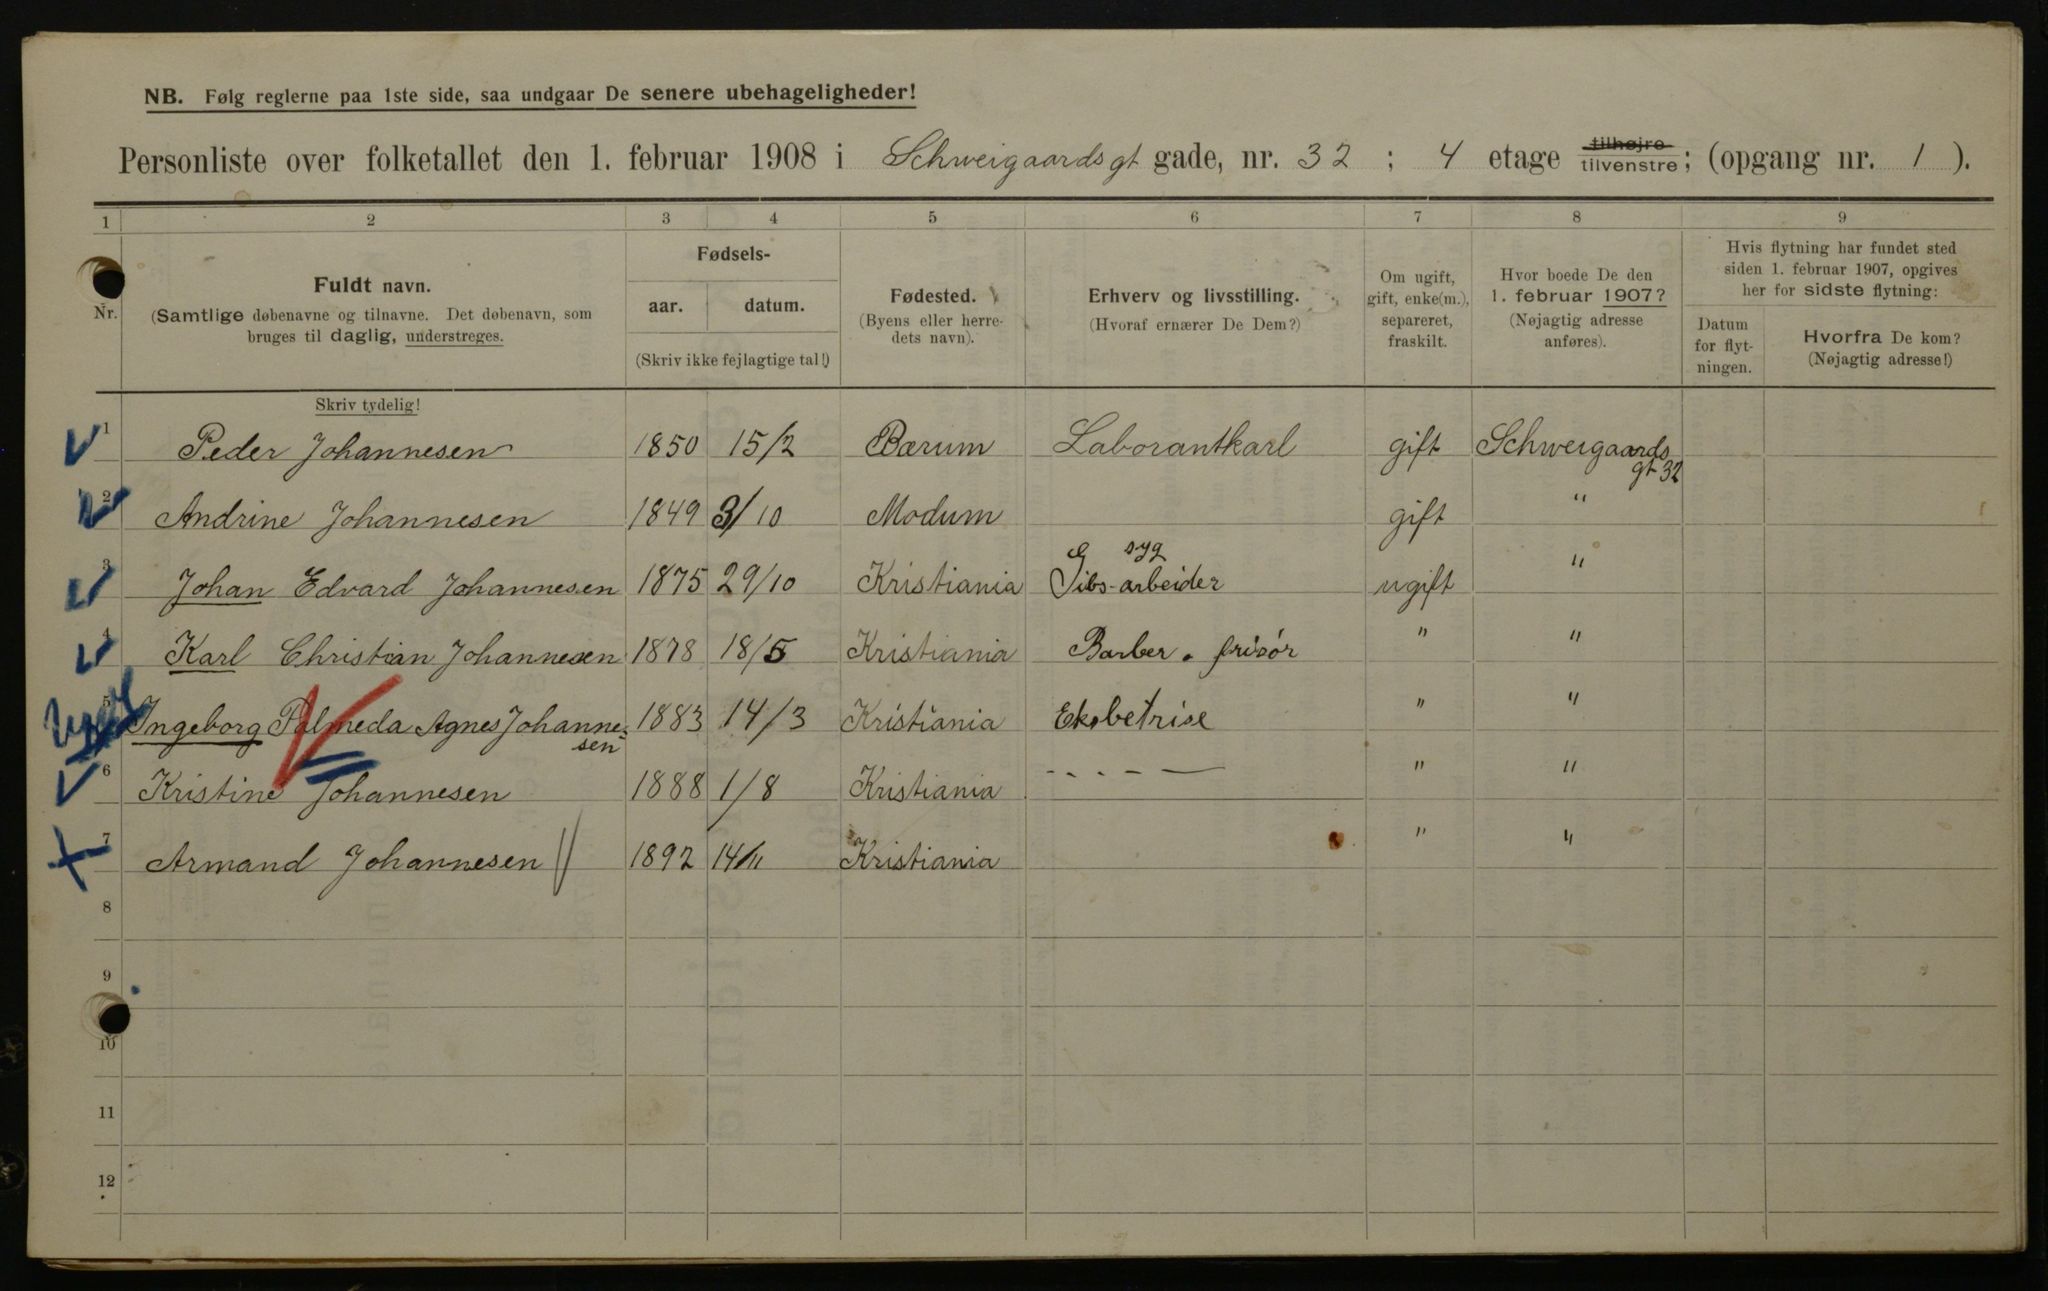 NB. Følg reglerne paa 1ste side, saa undgaar De senere ubehageligheder!
Personliste over folketallet den 1. februar 1908 i Schweigaards gt gade, nr. 32 ; 4 etage tilhøjre tilvenstre; (opgang nr. 1 ).
1 2 3 4 5 6 7 8 9
Nr.
Fuldt navn.
(Samtlige døbenavne og tilnavne. Det døbenavn, som
bruges til daglig, understreges.
Skriv tydelig!
Fødsels-
aar. datum.
(Skriv ikke fejlagtige tal!)
Fødested.
(Byens eller herre-
dets navn).
Erhverv og livsstilling.
(Hvoraf ernærer De Dem?)
Om ugift,
gift, enke(m.),
separeret,
fraskilt.
Hvor boede De den
1. februar 1907?
(Nøjagtig adresse
anføres).
Hvis flytning har fundet sted
siden 1. februar 1907, opgives
her for sidste flytning:
Datum
for flyt-
ningen.
Hvorfra De kom?
(Nøjagtig adresse!)
1 Peder Johannesen 1850 15/2 Bærum Laborantkarl gift Schweigaards
gt 32
2 Andrine Johannesen 1849 3/10 Modum gift "
syg
3 Johan Edvard Johannesen 1875 29/10 Kristiania Gibs-arbeider ugift "
4 Karl Christian Johannesen 1878 18/5 Kristiania Barber . frisør " "
5 Ingeborg Palmeda Agnes Johanne- 1883 14/3 Kristiania Eksbetrise " "
sen
6 Kristine Johannesen 1888 1/8 Kristiania - - - - — " "
7 Armand Johannesen 1892 14/11 Kristiania " "
8
9
10
11
12